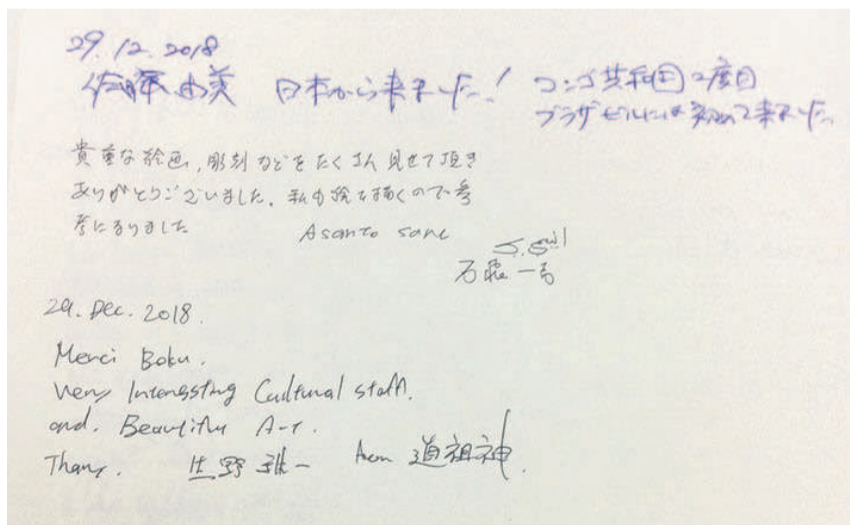 29.12.2018
佐藤由美 日本から来ました! コンゴ共和国2度目
ブラザビルには初めて来ました。
貴重な絵画,彫刻などをたくさん見せて頂き
ありがとうございました。私も絵を描くので参
考になりました
Asante sane
石 一
29. Dec. 2018.
Merci Boku.
Very Interessting Cultural staff.
and. Beautiful Art.
Thany. 生野 雅一 道祖神